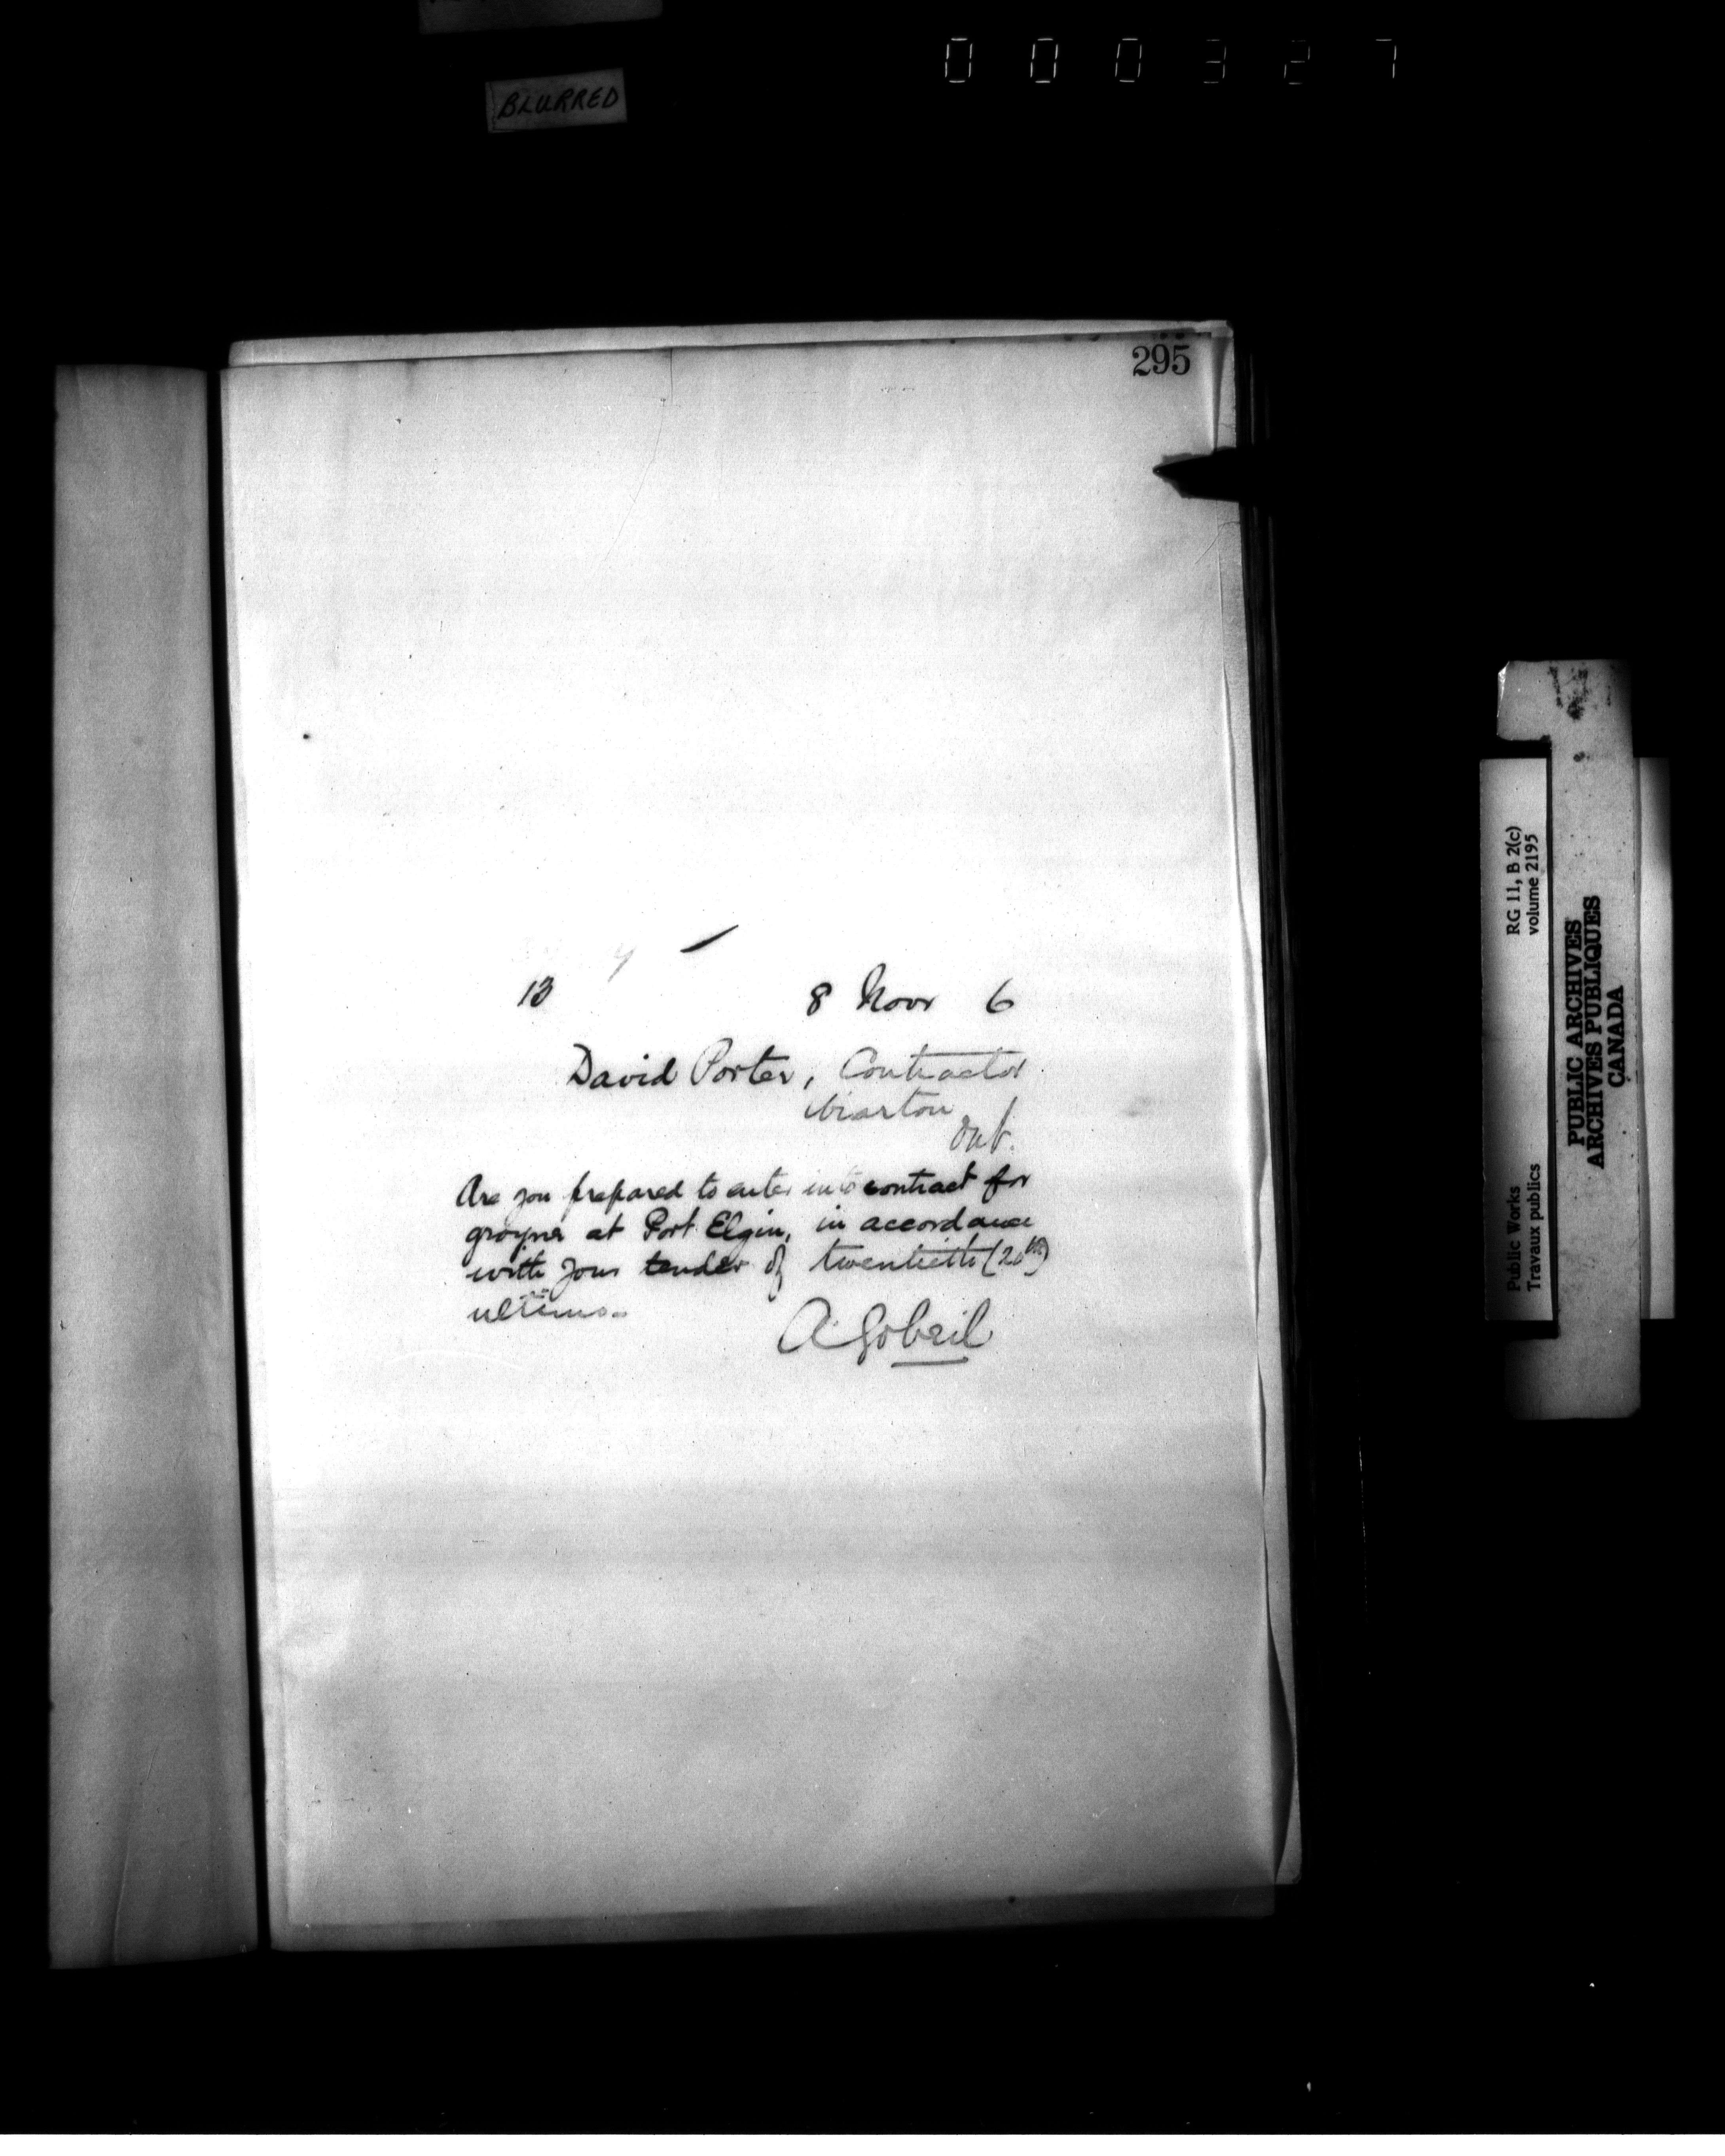 000327
BLURRED
295
13
8 Novr 6
David Porter, Contractor
Wiarton
Ont.
Are you prepared to enter into contract for
groynes at Port Elgin, in accordance
with your tender of twentieth (20th)
ultimo.
A. Gobeil
RG 11, B 2(c)
volume 2195
Public Works
Travaux publics
PUBLIC ARCHIVES
ARCHIVES PUBLIQUES
CANADA